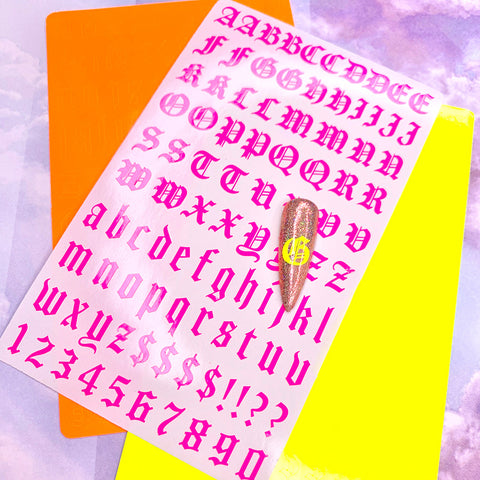 AABBCCDDEE
FFGGHHIIJJ
KKLLMMNN
OOPPQQRR
SSTTUUVV
WWXXYYZZ
abcdefghijkl
mnopqrstuv
wxyz$$$$!!??
1234567890
G